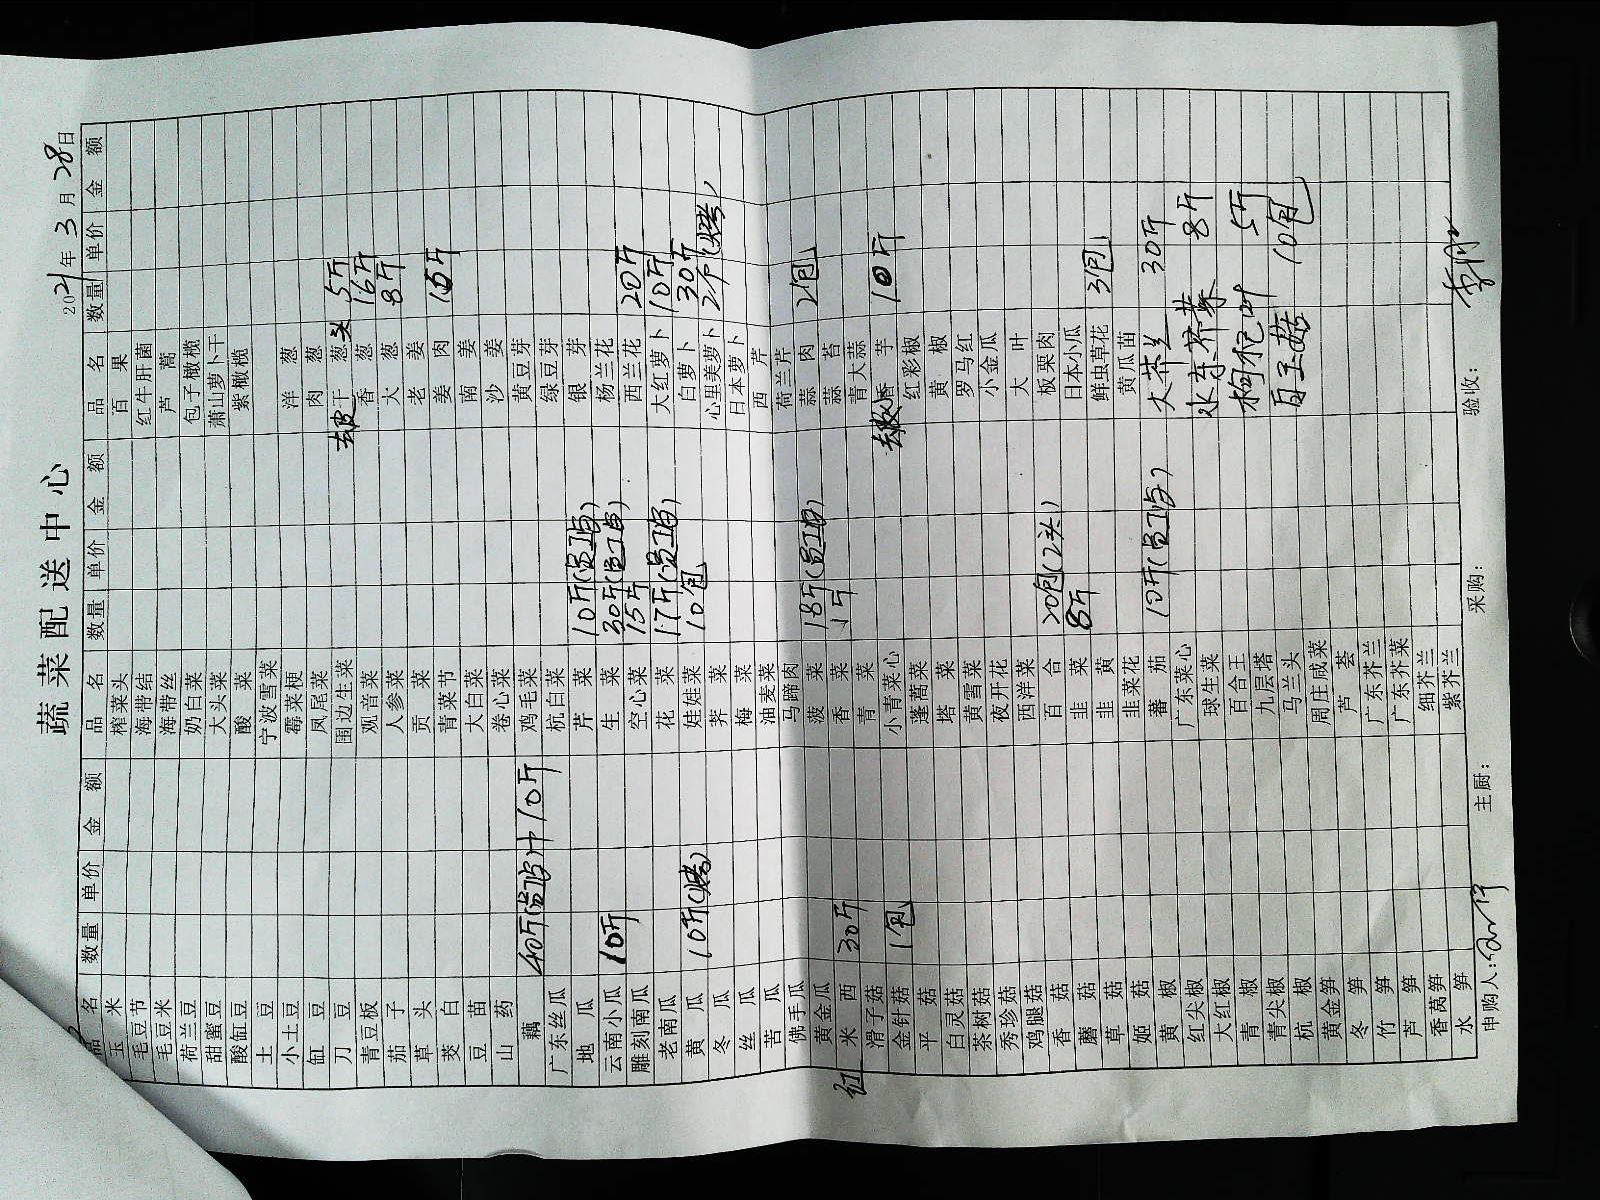 蔬菜配送中心
2021年3月28日
品名 数量 单价 金额 品名 数量 单价 金额 品名 数量 单价 金额
玉米 榨菜头 百果
毛豆节 海带结 红牛肝菌
毛豆米 海带丝 芦蒿
荷兰豆 奶白菜 包子橄榄
甜蜜豆 大头菜 萧山萝卜干
酸缸豆 酸菜 紫橄榄
土豆 宁波雪菜
小土豆 霉菜梗 洋葱
缸豆 凤尾菜 肉葱
刀豆 围边生菜 去皮干葱头 5斤
青豆板 观音菜 香葱 16斤
茄子 人参菜 大葱 8斤
草头 贡菜 老姜
茭白 青菜节 姜肉 16斤
豆苗 大白菜 南姜
山药 卷心菜 沙姜
藕 40斤(员工)中10斤 鸡毛菜 黄豆芽
广东丝瓜 杭白菜 绿豆芽
地瓜 芹菜 10斤(员工) 银芽
云南小瓜 10斤 生菜 30斤(员工) 杨兰花
雕刻南瓜 空心菜 15斤 西兰花 20斤
老南瓜 花菜 17斤(员工) 大红萝卜 10斤
黄瓜 10斤(烤) 娃娃菜 10包 白萝卜 30斤
冬瓜 荠菜 心里美萝卜 2个(烤)
丝瓜 梅菜 日本萝卜
苦瓜 油麦菜 西芹
佛手瓜 马蹄肉 荷兰芹
黄金瓜 菠菜 18斤(员工) 蒜肉 2包
红米西 30斤 香菜 1斤 蒜苔
滑子菇 青菜 青大蒜
金针菇 1包 小青菜心 去皮香芋 10斤
平菇 蓬蒿菜 红彩椒
白灵菇 塔菜 黄椒
茶树菇 黄雪菜 罗马红
秀珍菇 夜开花 小金瓜
鸡腿菇 西洋菜 大叶
香菇 百合 20包(2头) 板栗肉
蘑菇 韭菜 8斤 日本小瓜
草菇 韭黄 鲜虫草花 3包
姬菇 韭菜花 黄瓜苗
黄椒 蕃茄 10斤(员工) 大芥兰 30斤
红尖椒 广东菜心
大红椒 球生菜 水东芥菜 8斤
青椒 百合王 枸杞叶 5斤
青尖椒 九层塔
杭椒 马兰头 白玉菇 10包
黄金笋 周庄咸菜
冬笋 芦荟
竹笋 广东芥兰
芦笋 广东芥菜
香莴笋 细芥兰
水笋 紫芥兰
申购人: 主厨: 采购: 验收: